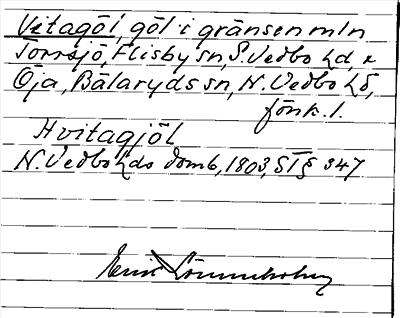 Vitagöl, göl i gränsen mln
Torrsjö, Flisby sn, S. Vedbo hd, o
Öja, Bälaryds sn, N. Vedbo hd,
jönk. l.
Hvitagjöl
N. Vedbo hds domb, 1803, ST § 347
Erik